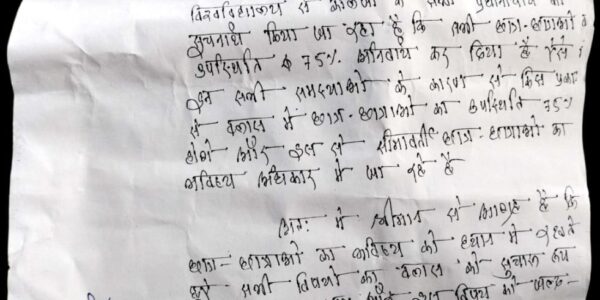 विश्वविद्यालय से कॉलेजों के सभी प्रधानाचार्य को
सूचनार्थ किया जा रहा है कि सभी छात्र-छात्राओं के
उपस्थिति के 75% अनिवार्य कर दिया है ऐसे में
इन सभी समस्याओं के कारण से किस प्रकार
से क्लास में छात्र-छात्राओं का उपस्थिति 75%
होगी और इस से सीमावर्ती छात्र-छात्राओं का
भविष्य अंधकार में जा रहे है
अतः मै श्रीमान से आग्रह है कि
छात्र-छात्राओं का भविष्य को ध्यान में रखते
हुये सभी विषयों का क्लास को सुचारू रूप
विषय को जल्द-